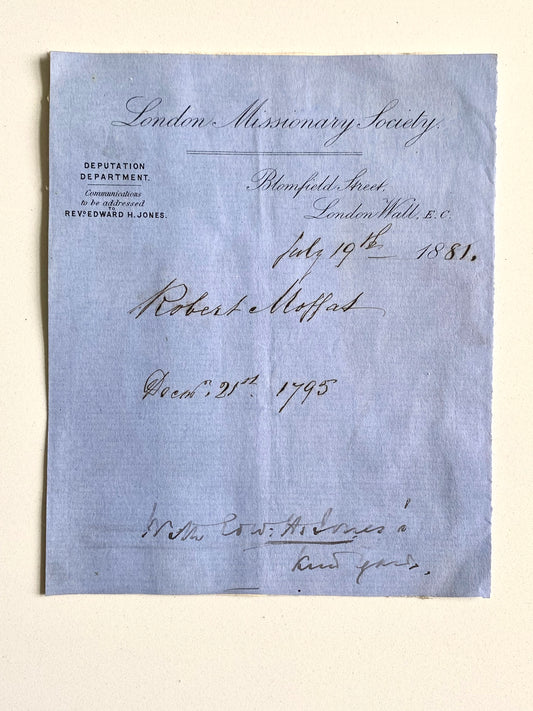 London Missionary Society.
DEPUTATION
DEPARTMENT.
Communications
to be addressed
TO
REVD. EDWARD H. JONES.
Blomfield Street,
London Wall, E.C.
July 19th 1881.
Robert Moffat
Decmr. 21st. 1795
With Edw: H. Jones's
kind